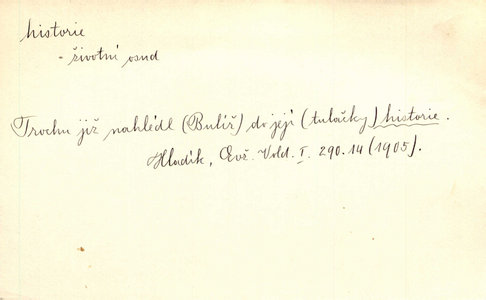 historie
- životní osud
Trochu již nahlédl (Bulíř) do její (tulačky) historie.
Hladík, Evž. Vold. I. 290.14 (1905).